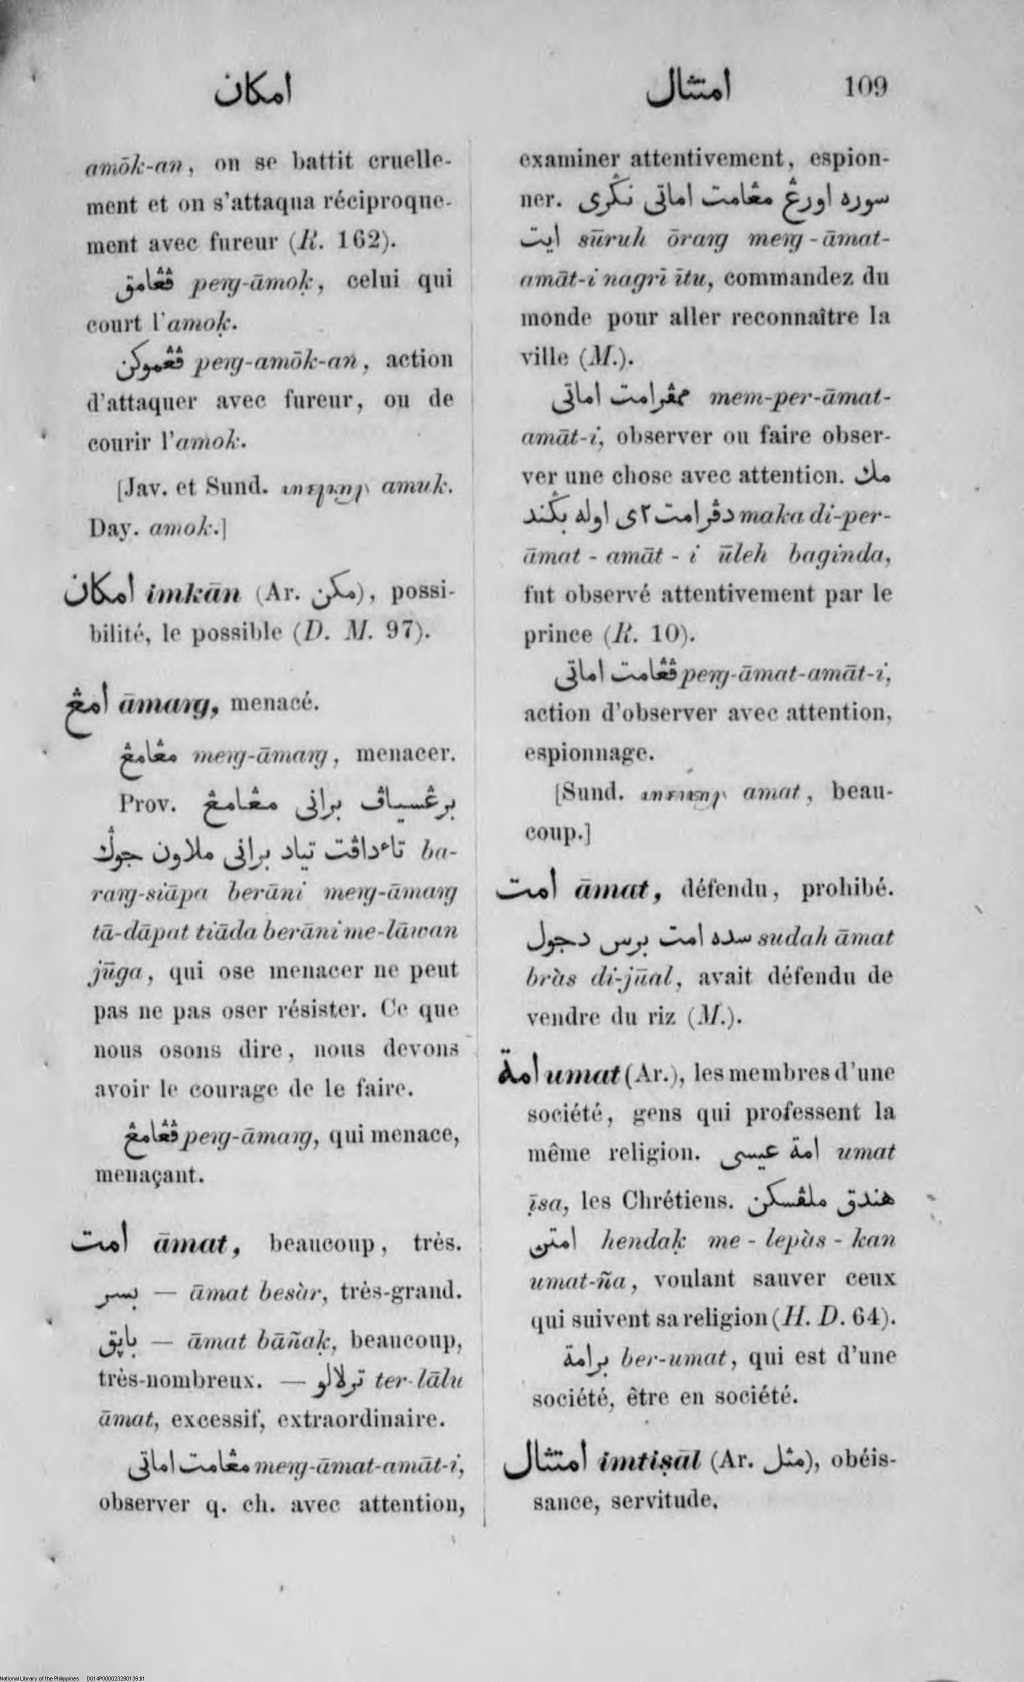 امكان
امتثال 109
amōk-an, on se battit cruelle-
ment et on s'attaqua réciproque-
ment avec fureur (R. 162).
ڤڠامق perg-āmoḳ, celui qui
court l'amoḳ.
ڤڠموكن perg-amōk-an, action
d'attaquer avec fureur, ou de
courir l'amok.
[Jav. et Sund. amuk.
Day. amok.]
امكان imkān (Ar. مكن), possi-
bilité, le possible (D. M. 97).
امڠ āmarg, menacé.
مڠامڠ merg-āmarg, menacer.
Prov. برڠسياڤ براني مڠامڠ
تاءداڤت تياد براني ملاون جوݢ ba-
rarg-siāpa berāni merg-āmarg
tā-dāpat tiāda berāni me-lāwan
jūga, qui ose menacer ne peut
pas ne pas oser résister. Ce que
nous osons dire, nous devons
avoir le courage de le faire.
ڤڠامڠ perg-āmarg, qui menace,
menaçant.
امت āmat, beaucoup, très.
بسر — āmat besàr, très-grand.
باڽق — āmat bāñaḳ, beaucoup,
très-nombreux. — ترلالو ter-lālu
āmat, excessif, extraordinaire.
مڠامت اماتي merg-āmat-amāt-i,
observer q. ch. avec attention,
examiner attentivement, espion-
ner. سوره اورڠ مڠامت اماتي نݢري
ايت sūruh ōrarg merg-āmat-
amāt-i nagrī ītu, commandez du
monde pour aller reconnaître la
ville (M.).
ممڤرامت اماتي mem-per-āmat-
amāt-i, observer ou faire obser-
ver une chose avec attention. مك
دڤرامت ٢ي اوله بݢند maka di-per-
āmat-amāt-i ūleh baginda,
fut observé attentivement par le
prince (R. 10).
ڤڠامت اماتي perg-āmat-amāt-i,
action d'observer avec attention,
espionnage.
[Sund. amat, beau-
coup.]
امت āmat, défendu, prohibé.
سده امت برس دجول sudah āmat
bràs di-jūal, avait défendu de
vendre du riz (M.).
امة umat (Ar.), les membres d'une
société, gens qui professent la
même religion. امة عيسى umat
ịsa, les Chrétiens. هندق ملڤسكن
امتن hendaḳ me-lepàs-kan
umat-ña, voulant sauver ceux
qui suivent sa religion (H. D. 64).
برامة ber-umat, qui est d'une
société, être en société.
امتثال imtiṣāl (Ar. مثل), obéis-
sance, servitude.
National Library of the Philippines